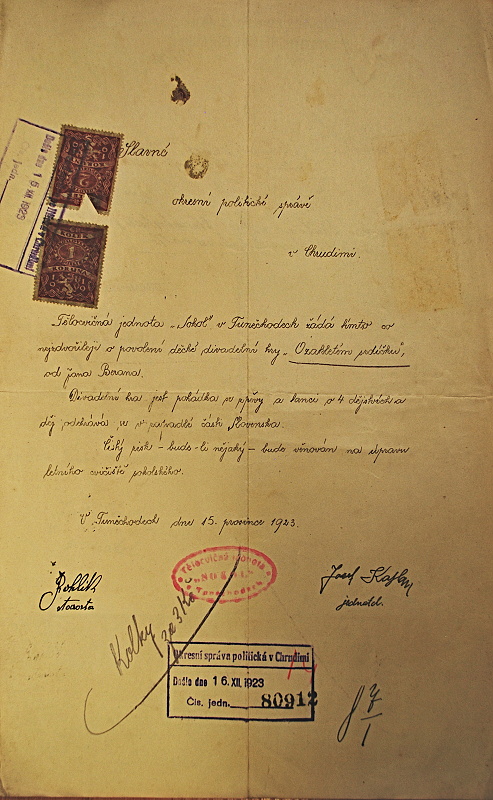 Slavné
okresní politické správě
v Chrudimi.
Tělocvičná jednota „Sokol" v Tuněchodech žádá tímto co
nejzdvořileji o povolení dětské divadelní hry „O zakletém srdéčku",
od Jana Berana.
Divadelní hra jest pohádka se zpěvy a tanci o 4 dějstvích a
děj odehrává se v části Slovenska.
Čistý zisk – bude-li nějaký – bude věnován na úpravu
letního cvičiště sokolského.
V Tuněchodech dne 15. prosince 1923.
starosta
Tělocvičná jednota
"SOKOL"
Tuněchodech
Josef
jednatel.
Kolky za 3 Kč
Okresní správa politická v Chrudimi
Došlo dne 16. XII. 1923
Čís. jedn. 80912
Došlo dne 16 XII 1923
KOLEK
1
KORUNA